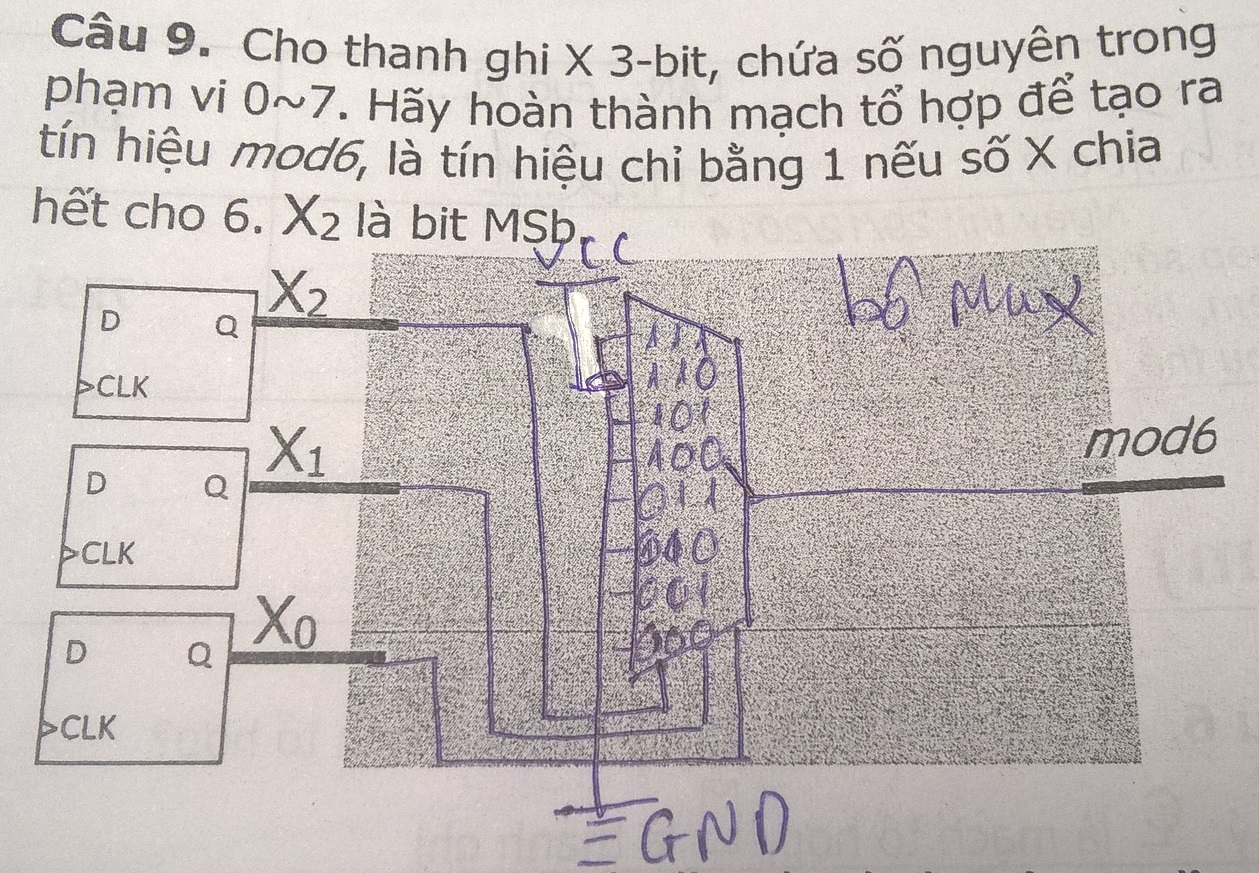 Câu 9. Cho thanh ghi X 3-bit, chứa số nguyên trong
phạm vi 0~7. Hãy hoàn thành mạch tổ hợp để tạo ra
tín hiệu mod6, là tín hiệu chỉ bằng 1 nếu số X chia
hết cho 6. X2 là bit MSb.
VCC
bộ Mux
X2
D Q
CLK
111
110
101
100
011
010
001
000
mod6
X1
D Q
CLK
X0
D Q
CLK
GND